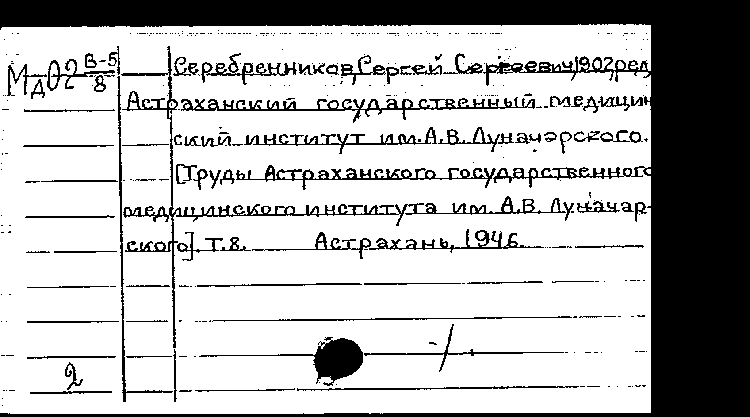 МдО2 В-5/8
Серебренников, Сергей Сергеевич, 1902, ред.
Астраханский государственный медицин
ский институт им. А.В. Луначарского.
[Труды Астраханского государственного
медицинского института им. А.В. Луначар-
ского]. Т.8. Астрахань, 1946.
-/.
2